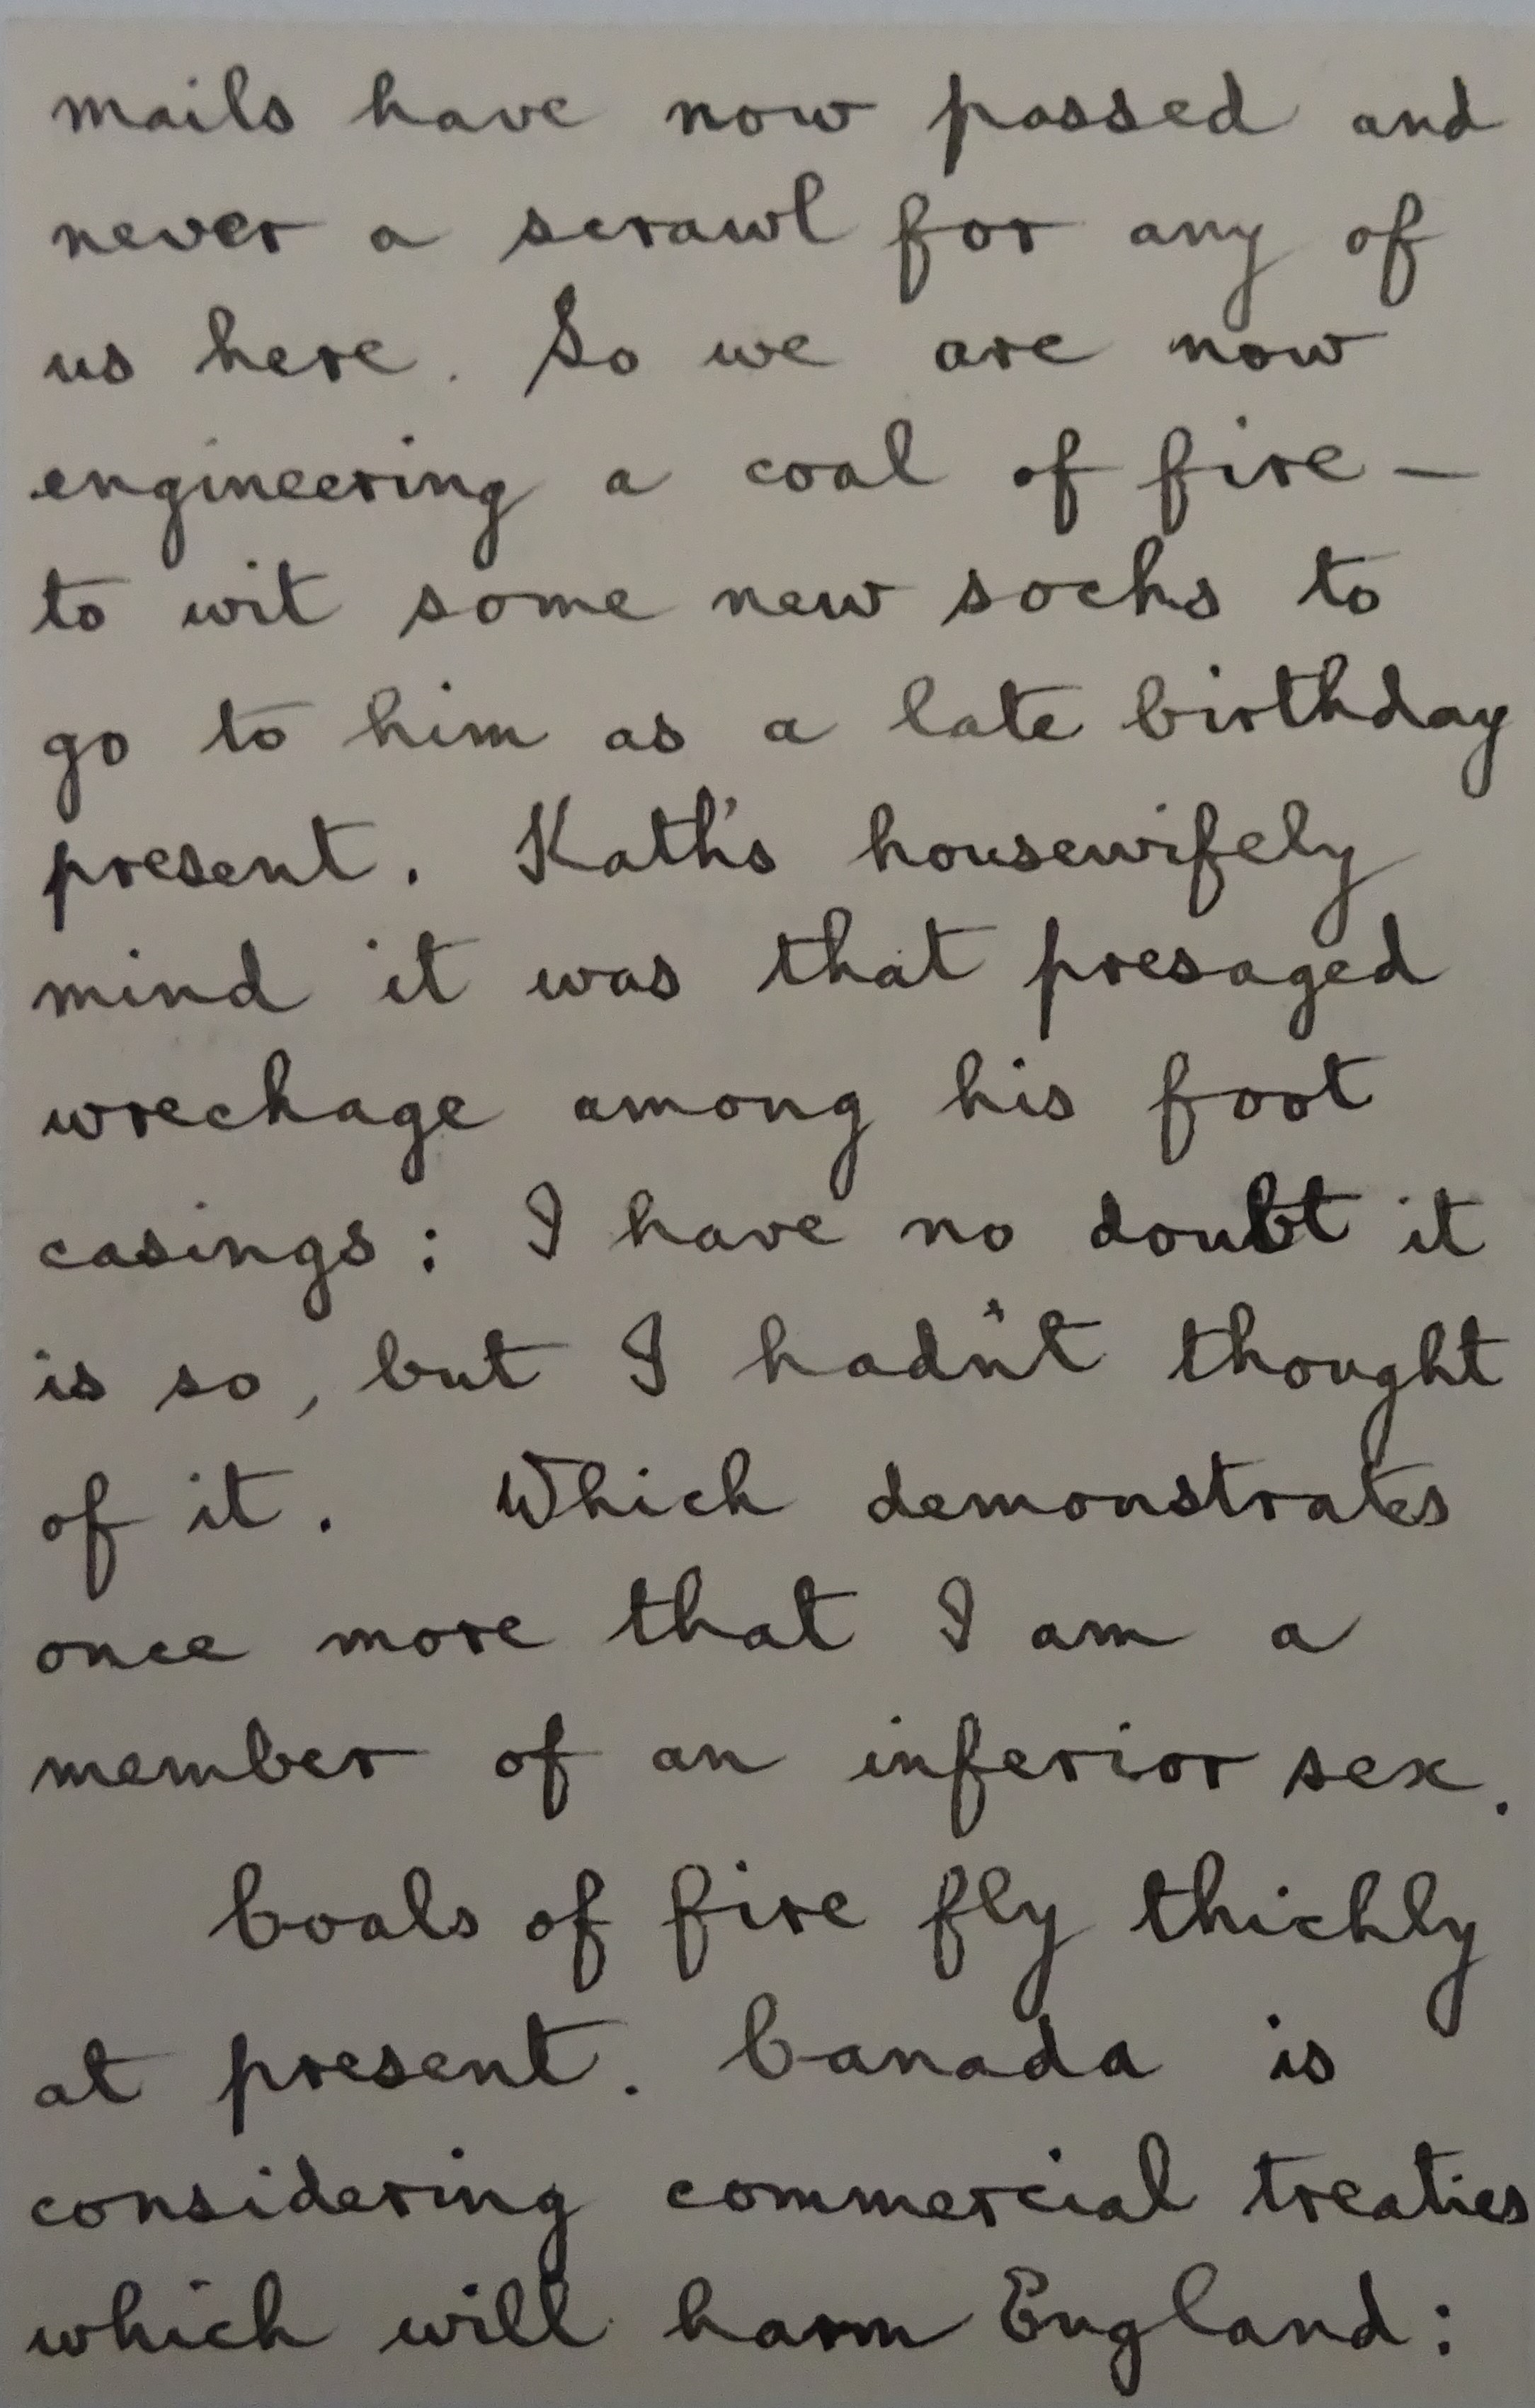 mails have now passed and
never a scrawl for any of
us here. So we are now
engineering a coal of fire —
to wit some new socks to
go to him as a late birthday
present. Kath's housewifely
mind it was that presaged
wreckage among his foot
casings: I have no doubt it
is so, but I hadn't thought
of it. Which demonstrates
once more that I am a
member of an inferior sex.
Coals of fire fly thickly
at present. Canada is
considering commercial treaties
which will harm England: